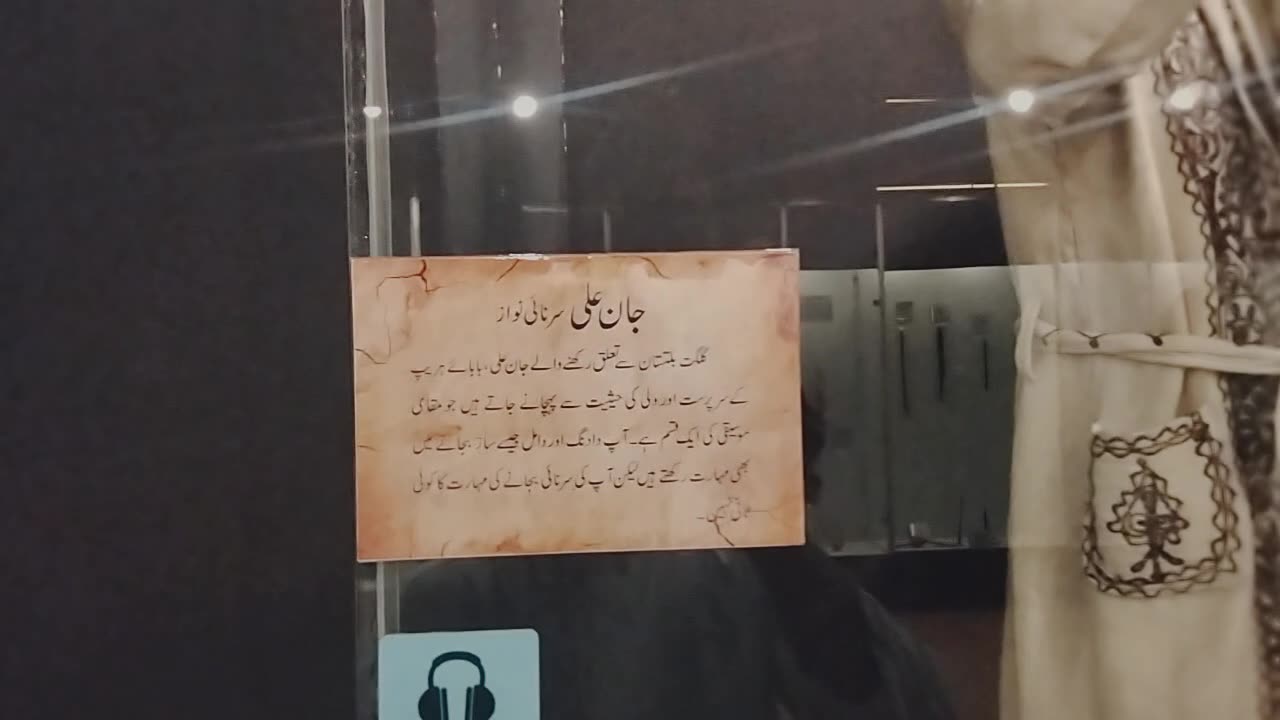 جان علی سرنائی نواز
گلگت بلتستان سے تعلق رکھنے والے جان علی، بابائے ہریپ
کے سرپرست اور ولی کی حیثیت سے پہچانے جاتے ہیں جو مقامی
موسیقی کی ایک قسم ہے۔ آپ دادنگ اور دامل جیسے ساز بجانے میں
بھی مہارت رکھتے ہیں لیکن آپ کی سرنائی بجانے کی مہارت کا کوئی
ثانی نہیں۔